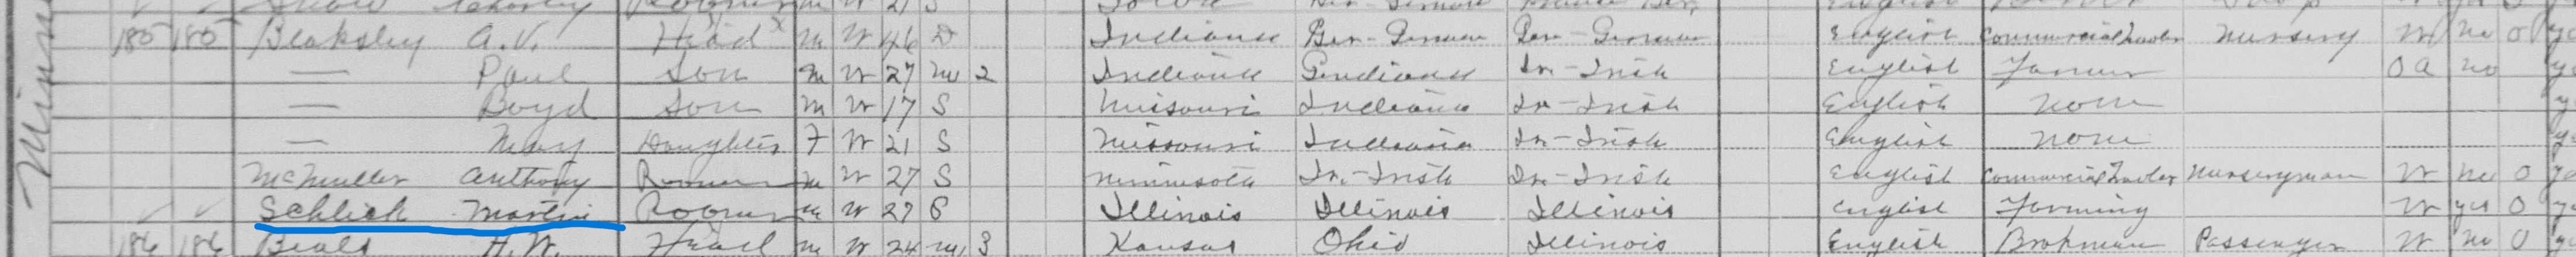 Minn
Roomer M W 21 S
185 185 Blaksley A. V. Head M W 46 D Indiana Ger-German Pen-German English Commercial Traveler Nursery W No O
— Paul Son M W 27 M 2 Indiana Indiana Ir-Irish English Farmer OA no
— Boyd Son M W 17 S Missouri Indiana Ir-Irish English None
— May Daughter F W 21 S Missouri Indiana Ir-Irish English None
McMullen Anthony Roomer M W 27 S Minnesota Ir-Irish Ir-Irish English Commercial Traveler Nurseryman W no O
Schlick Martin Roomer M W 27 S Illinois Illinois Illinois English Farming W yes O
186 186 Beals H. W. Head M W 24 M 3 Kansas Ohio Illinois English Brakeman Passenger W No O